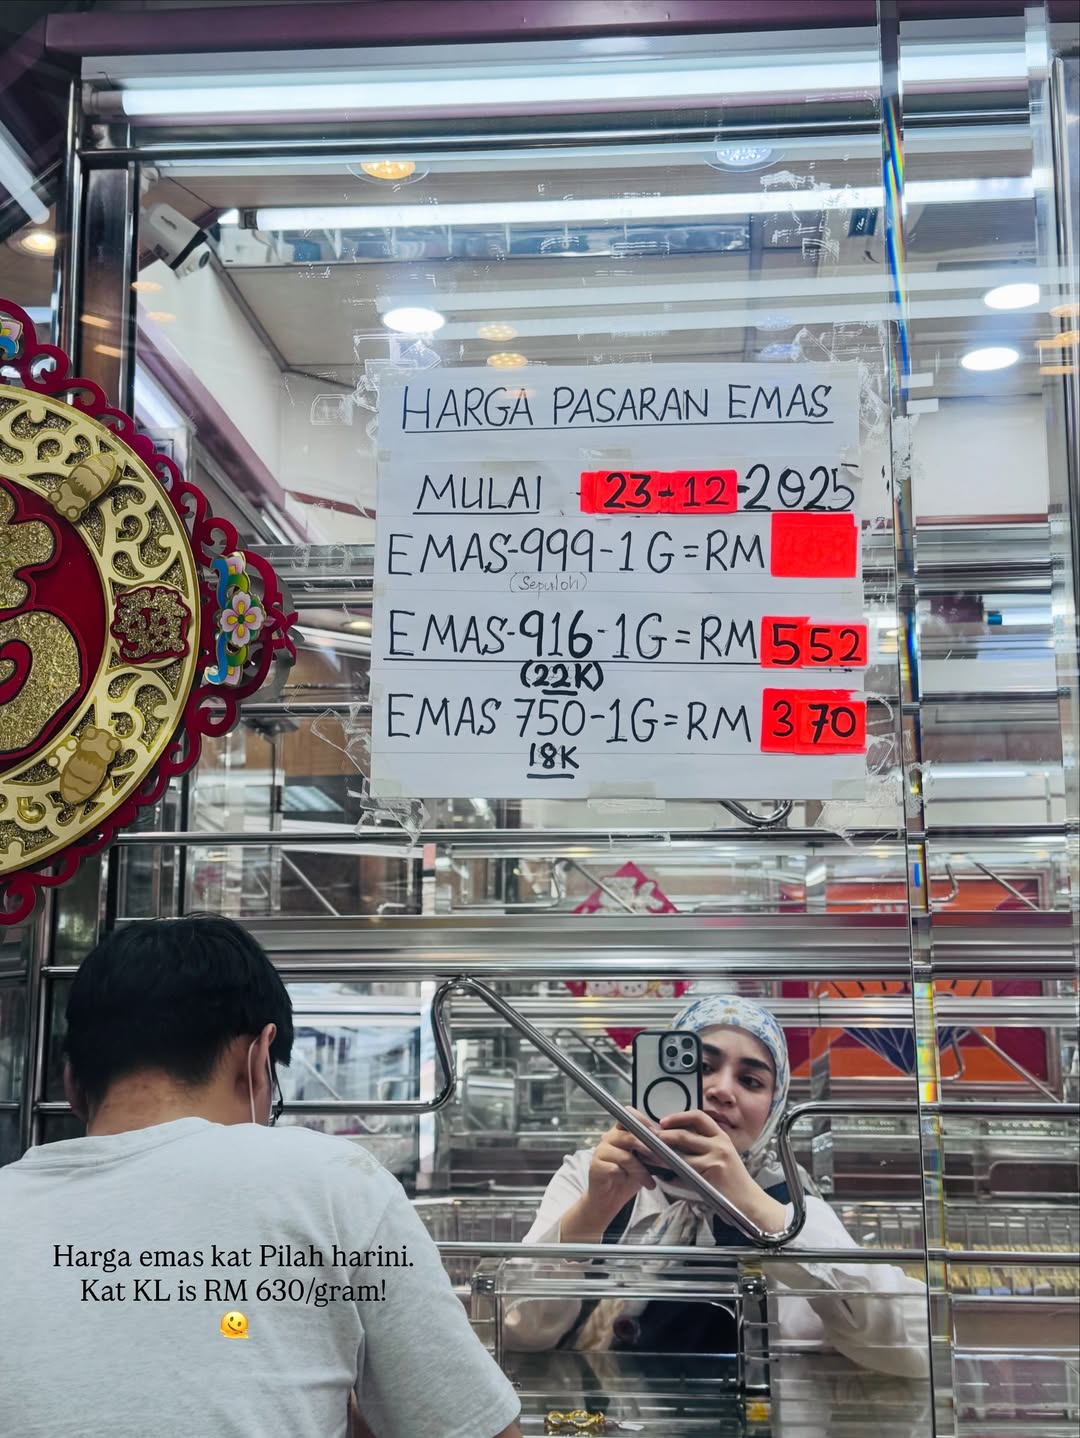 HARGA PASARAN EMAS
MULAI - 23-12-2025
EMAS-999-1G=RM
(Sepuloh)
EMAS-916-1G=RM552
(22K)
EMAS 750-1G=RM370
18K
Harga emas kat Pilah harini.
Kat KL is RM 630/gram!
🫠